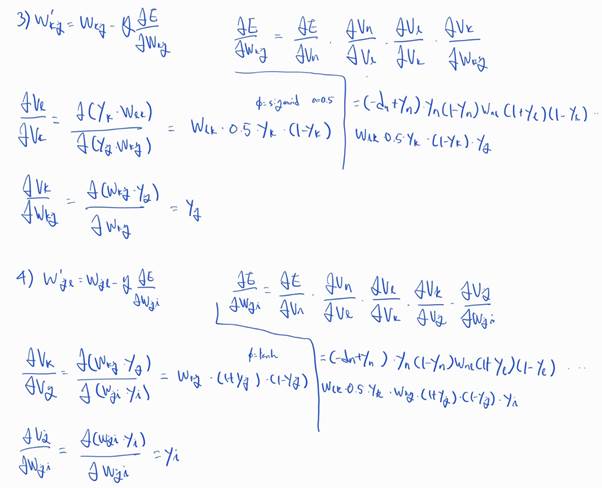 3) W'kj = Wkj - η ∂E/∂Wkj
∂E/∂Wkj = ∂E/∂Vn · ∂Vn/∂Vl · ∂Vl/∂Vk · ∂Vk/∂Wkj
∂Vl/∂Vk = ∂(Yk · Wlk)/∂(Yj · Wkj) = Wlk · 0.5 · Yk · (1-Yk)
φ=sigmoid a=0.5
= (-dn+Yn) · Yn(1-Yn) Wnl (1+Yl)(1-Yl) ...
Wlk 0.5 · Yk · (1-Yk) · Yj
∂Vk/∂Wkj = ∂(Wkj · Yj)/∂Wkj = Yj
4) W'ji = Wji - η ∂E/∂Wji
∂E/∂Wji = ∂E/∂Vn · ∂Vn/∂Vl · ∂Vl/∂Vk · ∂Vk/∂Vj · ∂Vj/∂Wji
∂Vk/∂Vj = ∂(Wkj · Yj)/∂(Wji · Yi) = Wkj · (1+Yj) · (1-Yj)
φ=tanh
= (-dn+Yn) · Yn(1-Yn) Wnl (1+Yl)(1-Yl) ...
Wlk 0.5 · Yk · Wkj · (1+Yj) · (1-Yj) · Yi
∂Vj/∂Wji = ∂(Wji · Yi)/∂Wji = Yi